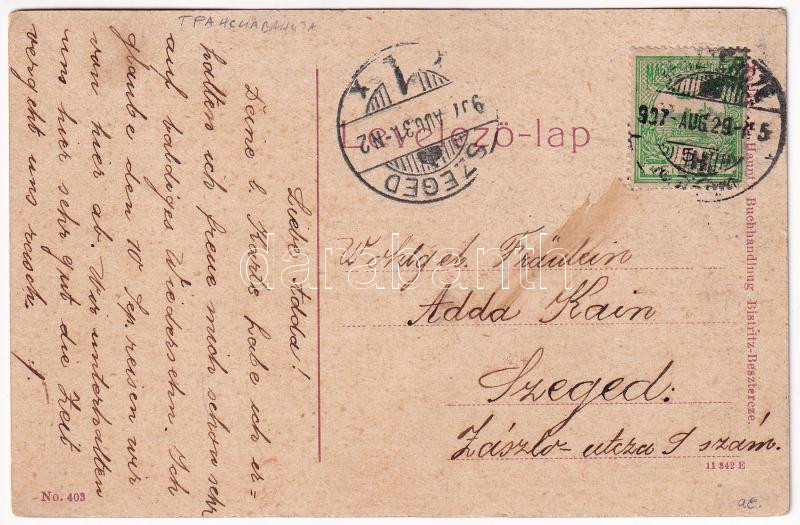 ТРАНСИЛВАНИЈА
Liebe Adda!
Deine l. Karte habe ich er=
halten ich freue mich schon sehr
auf baldiges Wiedersehn. Ich
glaube den 10 Sep. reisen wir
von hier ab. Wir unterhalten
uns hier sehr gut die Zeit
vergeht uns rasch.
No. 403
SZEGED
907 AUG. 31-N2
1
Levelező-lap
907-AUG 29-
5
Wohlgeb. Fräulein
Adda Kain
Szeged.
László-utcza 9 szám.
Haupt Buchhandlung Bistritz-Besztercze.
11 842 E
ae.
darabanth